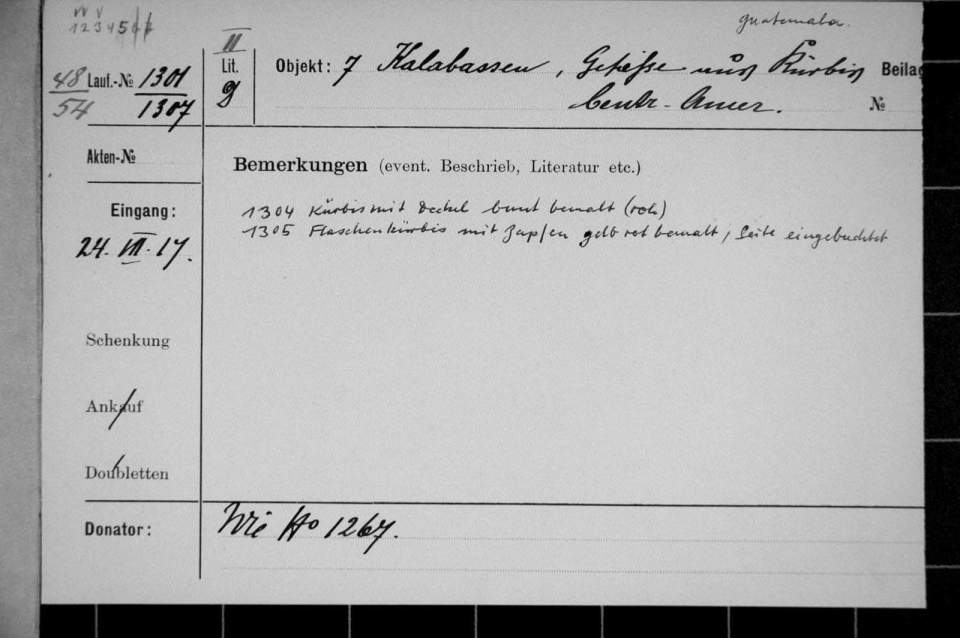 Guatemala.
1 2 3 4 5 6 7
48 Lauf.-№ 1301
54 1307
II
Lit. g
Objekt: 7 Kalabassen, Gefässe aus Kürbis
Centr-Amer.
Beilag
№
Akten-№
Bemerkungen (event. Beschrieb, Literatur etc.)
Eingang:
24. VII. 17.
1304 Kürbis mit Deckel bunt bemalt (rot)
1305 Flaschenkürbis mit Zapfen gelb rot bemalt, Seite eingebuchtet
Schenkung
Ankauf
Doubletten
Donator: Wie No 1267.